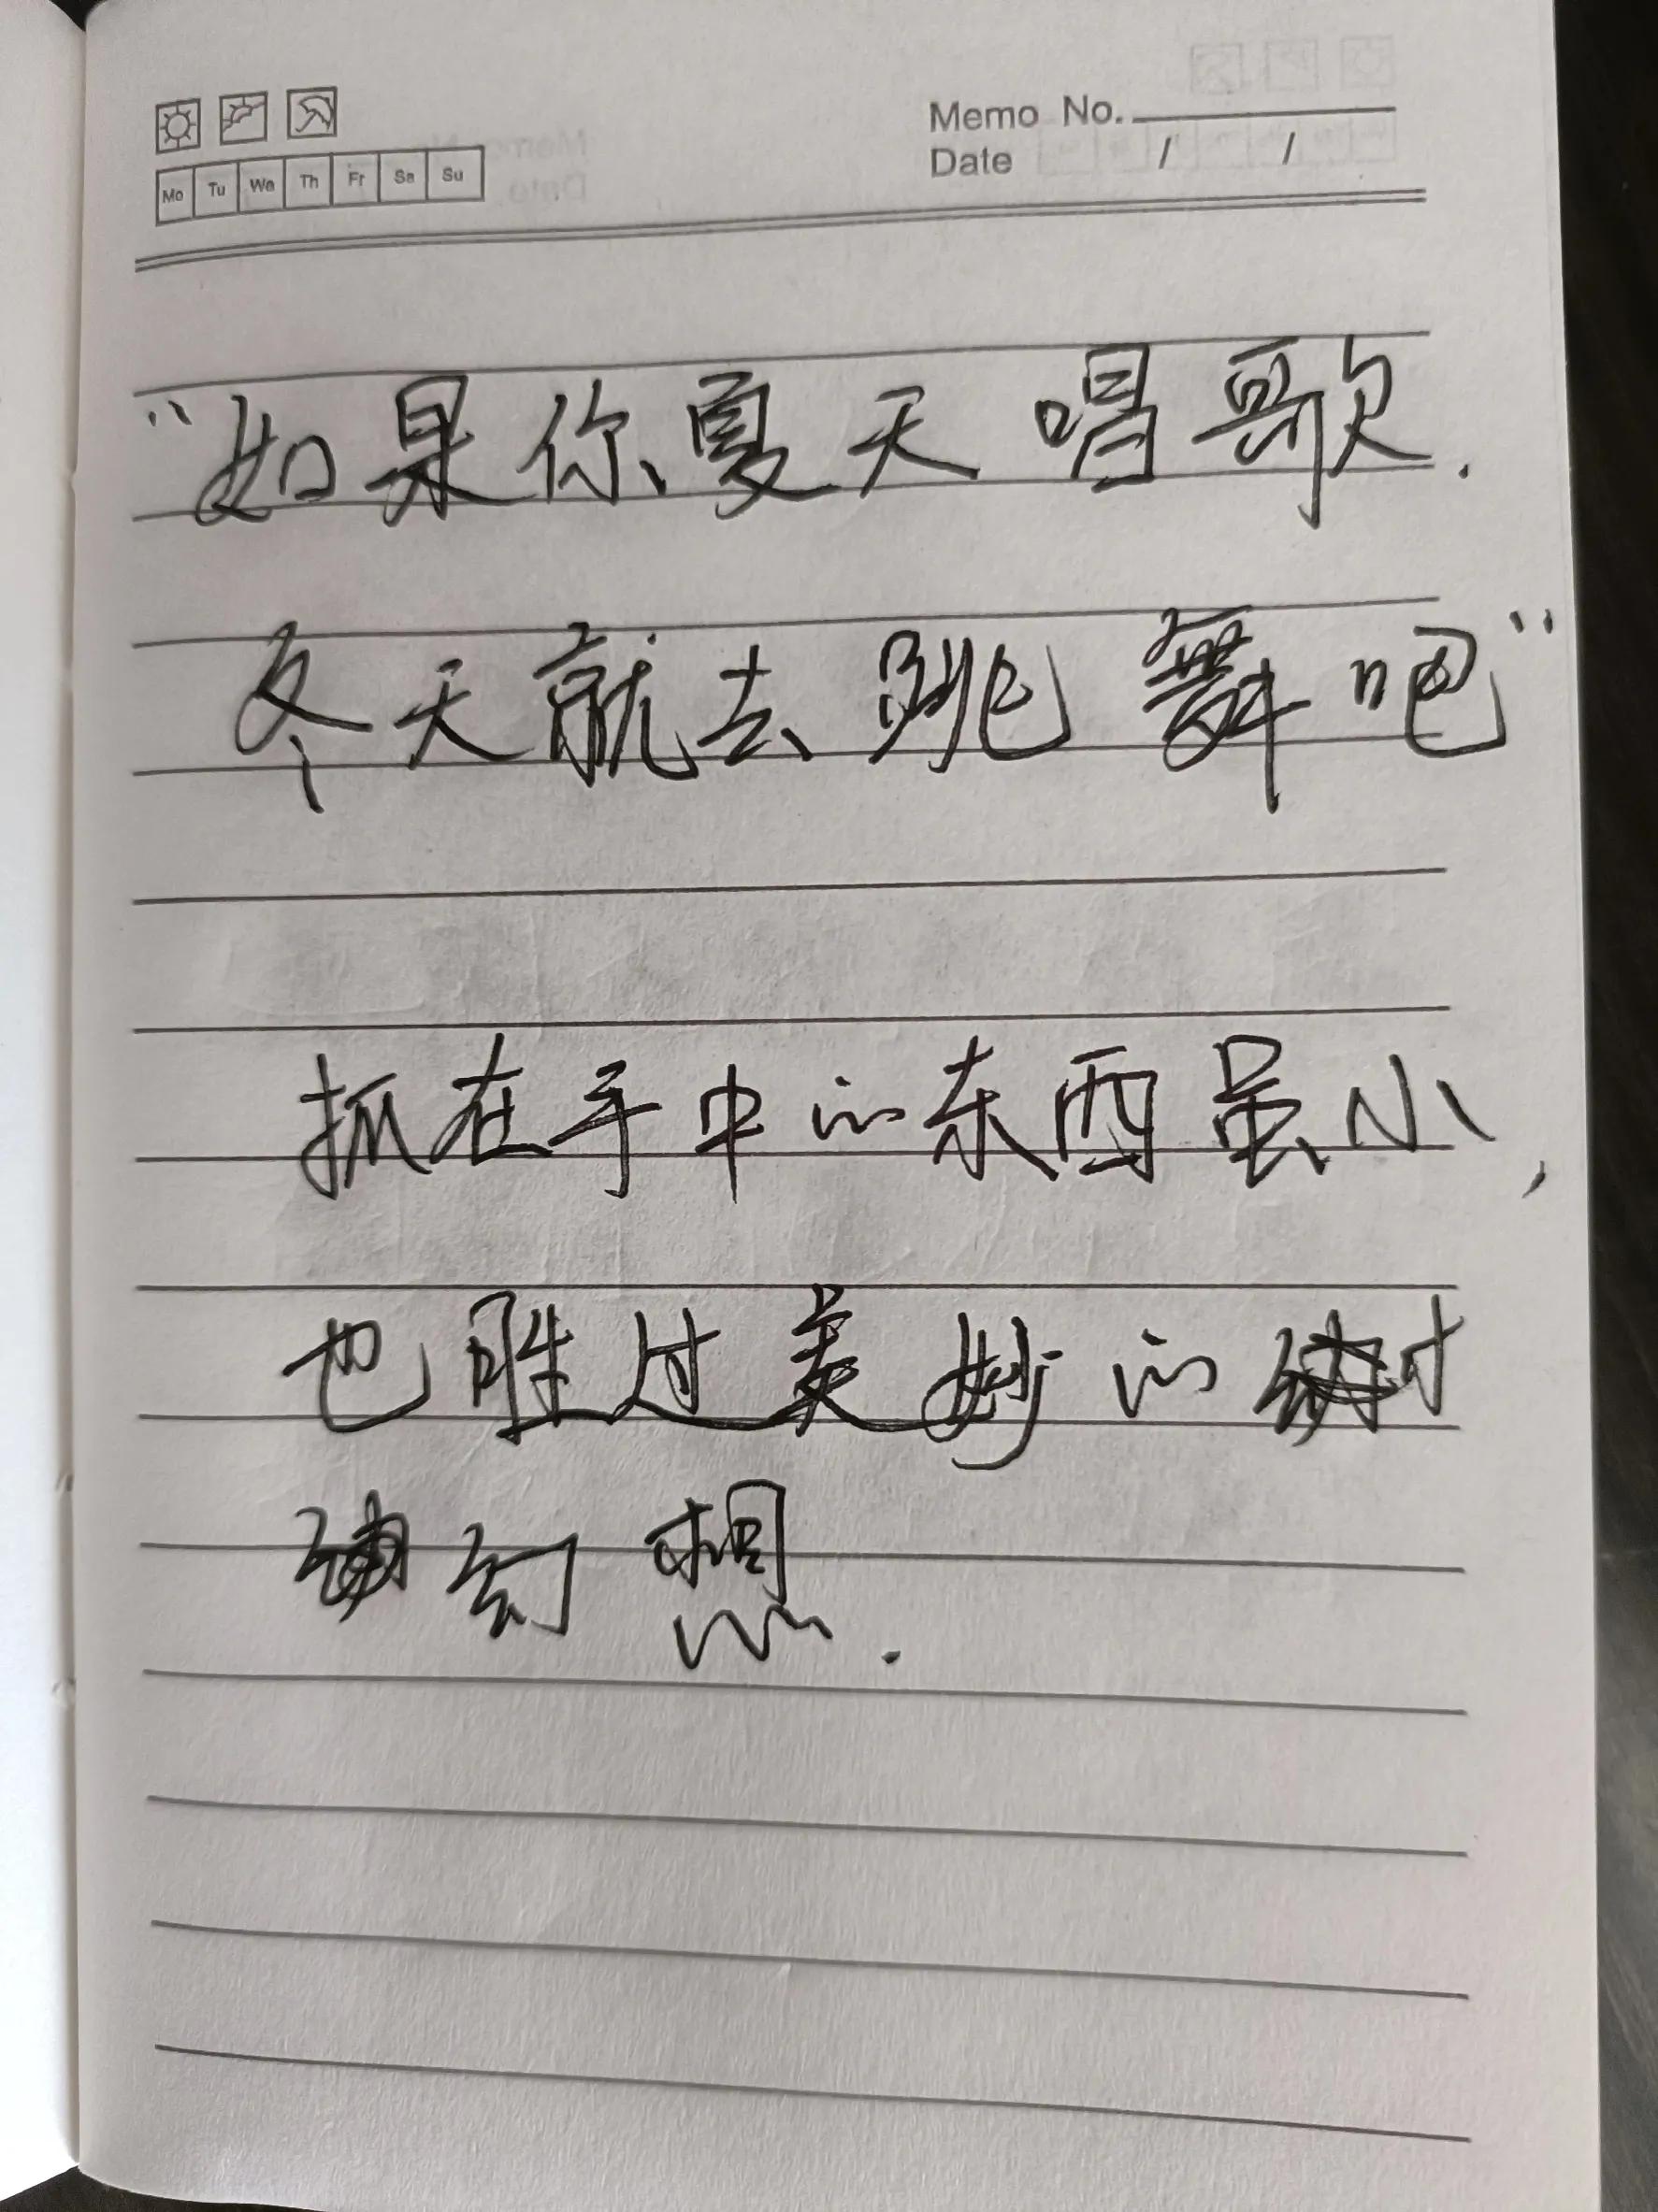 Memo No.
Date / /
Mo Tu We Th Fr Sa Su
“如果你夏天唱歌.
冬天就去跳舞吧”
抓在手中的东西虽小,
也胜过美妙的
幻想.